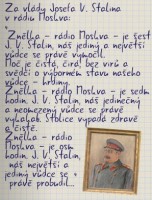 Za vlády Josefa V. Stalina
v rádiu Moskva:
Znělka - rádio Moskva - je šest
J. V. Stalin, náš jediný a největší
vůdce se právě vymočil.
Moč je čistá, čirá, bez virů a
svědčí o výborném stavu našeho
vůdce - hrdiny.
Znělka - rádio Moskva - je sedm
hodin. J. V. Stalin, náš jedinečný
a neomezený vůdce se právě
vykakal. Stolice vypadá zdravě
a čistě.
Znělka - rádio
Moskva - je osm
hodin. J. V. Stalin,
náš největší a
jediný vůdce se
právě probudil...